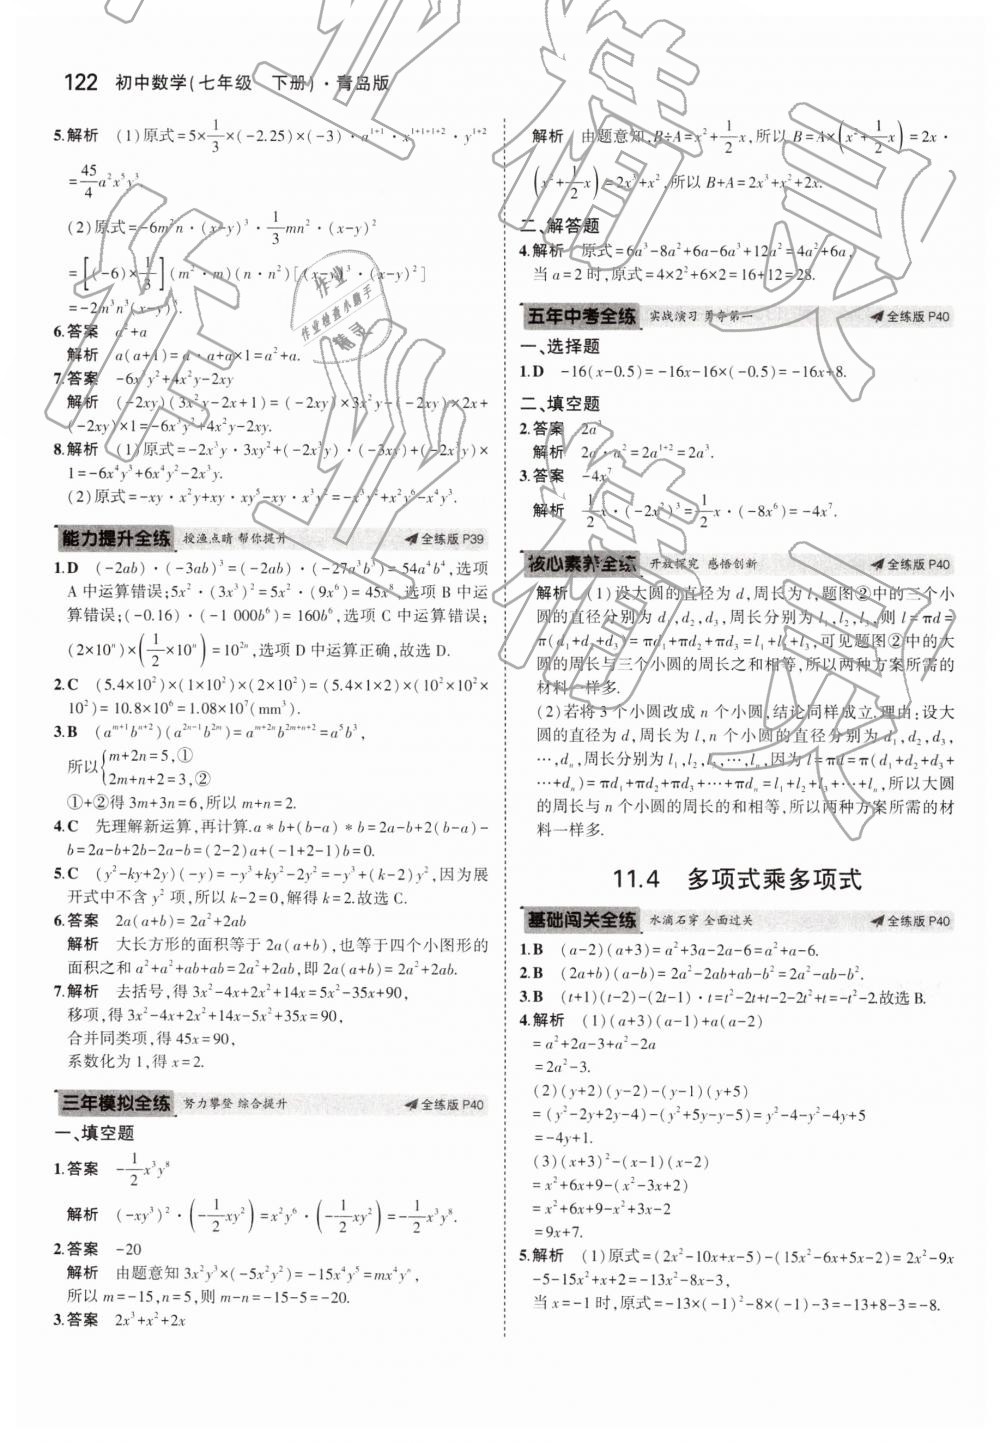 122 初中数学(七年级 下册)·青岛版
5.解析 (1)原式=5×1/3×(-2.25)×(-3)·a^{1+1}·x^{1+1+1+2}·y^{1+2}
=45/4 a²x⁵y³.
(2)原式=-6m²n·(x-y)³·1/3 mn²·(x-y)²
=[(-6)×1/3](m²·m)(n·n²)[(x-y)³·(x-y)²]
=-2m³n³(x-y)⁵.
6.答案 a²+a
解析 a(a+1)=a·a+a×1=a²+a.
7.答案 -6x³y²+4x²y-2xy
解析 (-2xy)(3x²y-2x+1)=(-2xy)×3x²y-(-2xy)×2x+
(-2xy)×1=-6x³y²+4x²y-2xy.
8.解析 (1)原式=-2x³y·3xy²+(-2x³y)·(-3xy)+(-2x³y)×
1=-6x⁴y³+6x⁴y²-2x³y.
(2)原式=-xy·x²y+xy·xy⁵-xy·x³y²=-x³y²+x²y⁶-x⁴y³.
能力提升全练 授渔点睛 帮你提升 全练版P39
1.D (-2ab)·(-3ab)³=(-2ab)·(-27a³b³)=54a⁴b⁴,选项
A中运算错误;5x²·(3x³)²=5x²·(9x⁶)=45x⁸,选项B中运
算错误;(-0.16)·(-1 000b⁶)=160b⁶,选项C中运算错误;
(2×10ⁿ)×(1/2×10ⁿ)=10²ⁿ,选项D中运算正确,故选D.
2.C (5.4×10²)×(1×10²)×(2×10²)=(5.4×1×2)×(10²×10²×
10²)=10.8×10⁶=1.08×10⁷(mm³).
3.B (a^{m+1}b^{n+2})(a^{2n-1}b^{2m})=a^{m+2n}b^{2m+n+2}=a⁵b³,
所以{m+2n=5,①
2m+n+2=3,②
①+②得3m+3n=6,所以m+n=2.
4.C 先理解新运算,再计算.a*b+(b-a)*b=2a-b+2(b-a)-
b=2a-b+2b-2a-b=(2-2)a+(-1+2-1)b=0.
5.C (y²-ky+2y)(-y)=-y³+ky²-2y²=-y³+(k-2)y²,因为展
开式中不含y²项,所以k-2=0,解得k=2.故选C.
6.答案 2a(a+b)=2a²+2ab
解析 大长方形的面积等于2a(a+b),也等于四个小图形的
面积之和a²+a²+ab+ab=2a²+2ab,即2a(a+b)=2a²+2ab.
7.解析 去括号,得3x²-4x+2x²+14x=5x²-35x+90,
移项,得3x²-4x+2x²+14x-5x²+35x=90,
合并同类项,得45x=90,
系数化为1,得x=2.
三年模拟全练 努力攀登 综合提升 全练版P40
一、填空题
1.答案 -1/2 x³y⁸
解析 (-xy³)²·(-1/2 xy²)=x²y⁶·(-1/2 xy²)=-1/2 x³y⁸.
2.答案 -20
解析 由题意知3x²y³×(-5x²y²)=-15x⁴y⁵=mx⁴yⁿ,
所以m=-15,n=5,则m-n=-15-5=-20.
3.答案 2x³+x²+2x
解析 由题意知,B÷A=x²+1/2 x,所以B=A×(x²+1/2 x)=2x·
(x²+1/2 x)=2x³+x²,所以B+A=2x³+x²+2x.
二、解答题
4.解析 原式=6a³-8a²+6a-6a³+12a²=4a²+6a,
当a=2时,原式=4×2²+6×2=16+12=28.
五年中考全练 实战演习 勇夺第一 全练版P40
一、选择题
1.D -16(x-0.5)=-16x-16×(-0.5)=-16x+8.
二、填空题
2.答案 2a³
解析 2a·a²=2a^{1+2}=2a³.
3.答案 -4x⁷
解析 1/2 x·(-2x²)³=1/2 x·(-8x⁶)=-4x⁷.
核心素养全练 开放探究 感悟创新 全练版P40
解析 (1)设大圆的直径为d,周长为l,题图②中的三个小
圆的直径分别为d₁,d₂,d₃,周长分别为l₁,l₂,l₃,则l=πd=
π(d₁+d₂+d₃)=πd₁+πd₂+πd₃=l₁+l₂+l₃,可见题图②中的大
圆的周长与三个小圆的周长之和相等,所以两种方案所需的
材料一样多.
(2)若将3个小圆改成n个小圆,结论同样成立.理由:设大
圆的直径为d,周长为l,n个小圆的直径分别为d₁,d₂,d₃,
…,dₙ,周长分别为l₁,l₂,l₃,…,lₙ,因为l=πd=π(d₁+d₂+d₃+
…+dₙ)=πd₁+πd₂+πd₃+…+πdₙ=l₁+l₂+l₃+…+lₙ,所以大圆
的周长与n个小圆的周长的和相等,所以两种方案所需的材
料一样多.
11.4 多项式乘多项式
基础闯关全练 水滴石穿 全面过关 全练版P40
1.B (a-2)(a+3)=a²+3a-2a-6=a²+a-6.
2.B (2a+b)(a-b)=2a²-2ab+ab-b²=2a²-ab-b².
3.B (t+1)(t-2)-(2t-1)·t=t²-2t+t-2-2t²+t=-t²-2.故选B.
4.解析 (1)(a+3)(a-1)+a(a-2)
=a²+2a-3+a²-2a
=2a²-3.
(2)(y+2)(y-2)-(y-1)(y+5)
=(y²-2y+2y-4)-(y²+5y-y-5)=y²-4-y²-4y+5
=-4y+1.
(3)(x+3)²-(x-1)(x-2)
=x²+6x+9-(x²-3x+2)
=x²+6x+9-x²+3x-2
=9x+7.
5.解析 (1)原式=(2x²-10x+x-5)-(15x²-6x+5x-2)=2x²-9x
-5-15x²+x+2=-13x²-8x-3,
当x=-1时,原式=-13×(-1)²-8×(-1)-3=-13+8-3=-8.